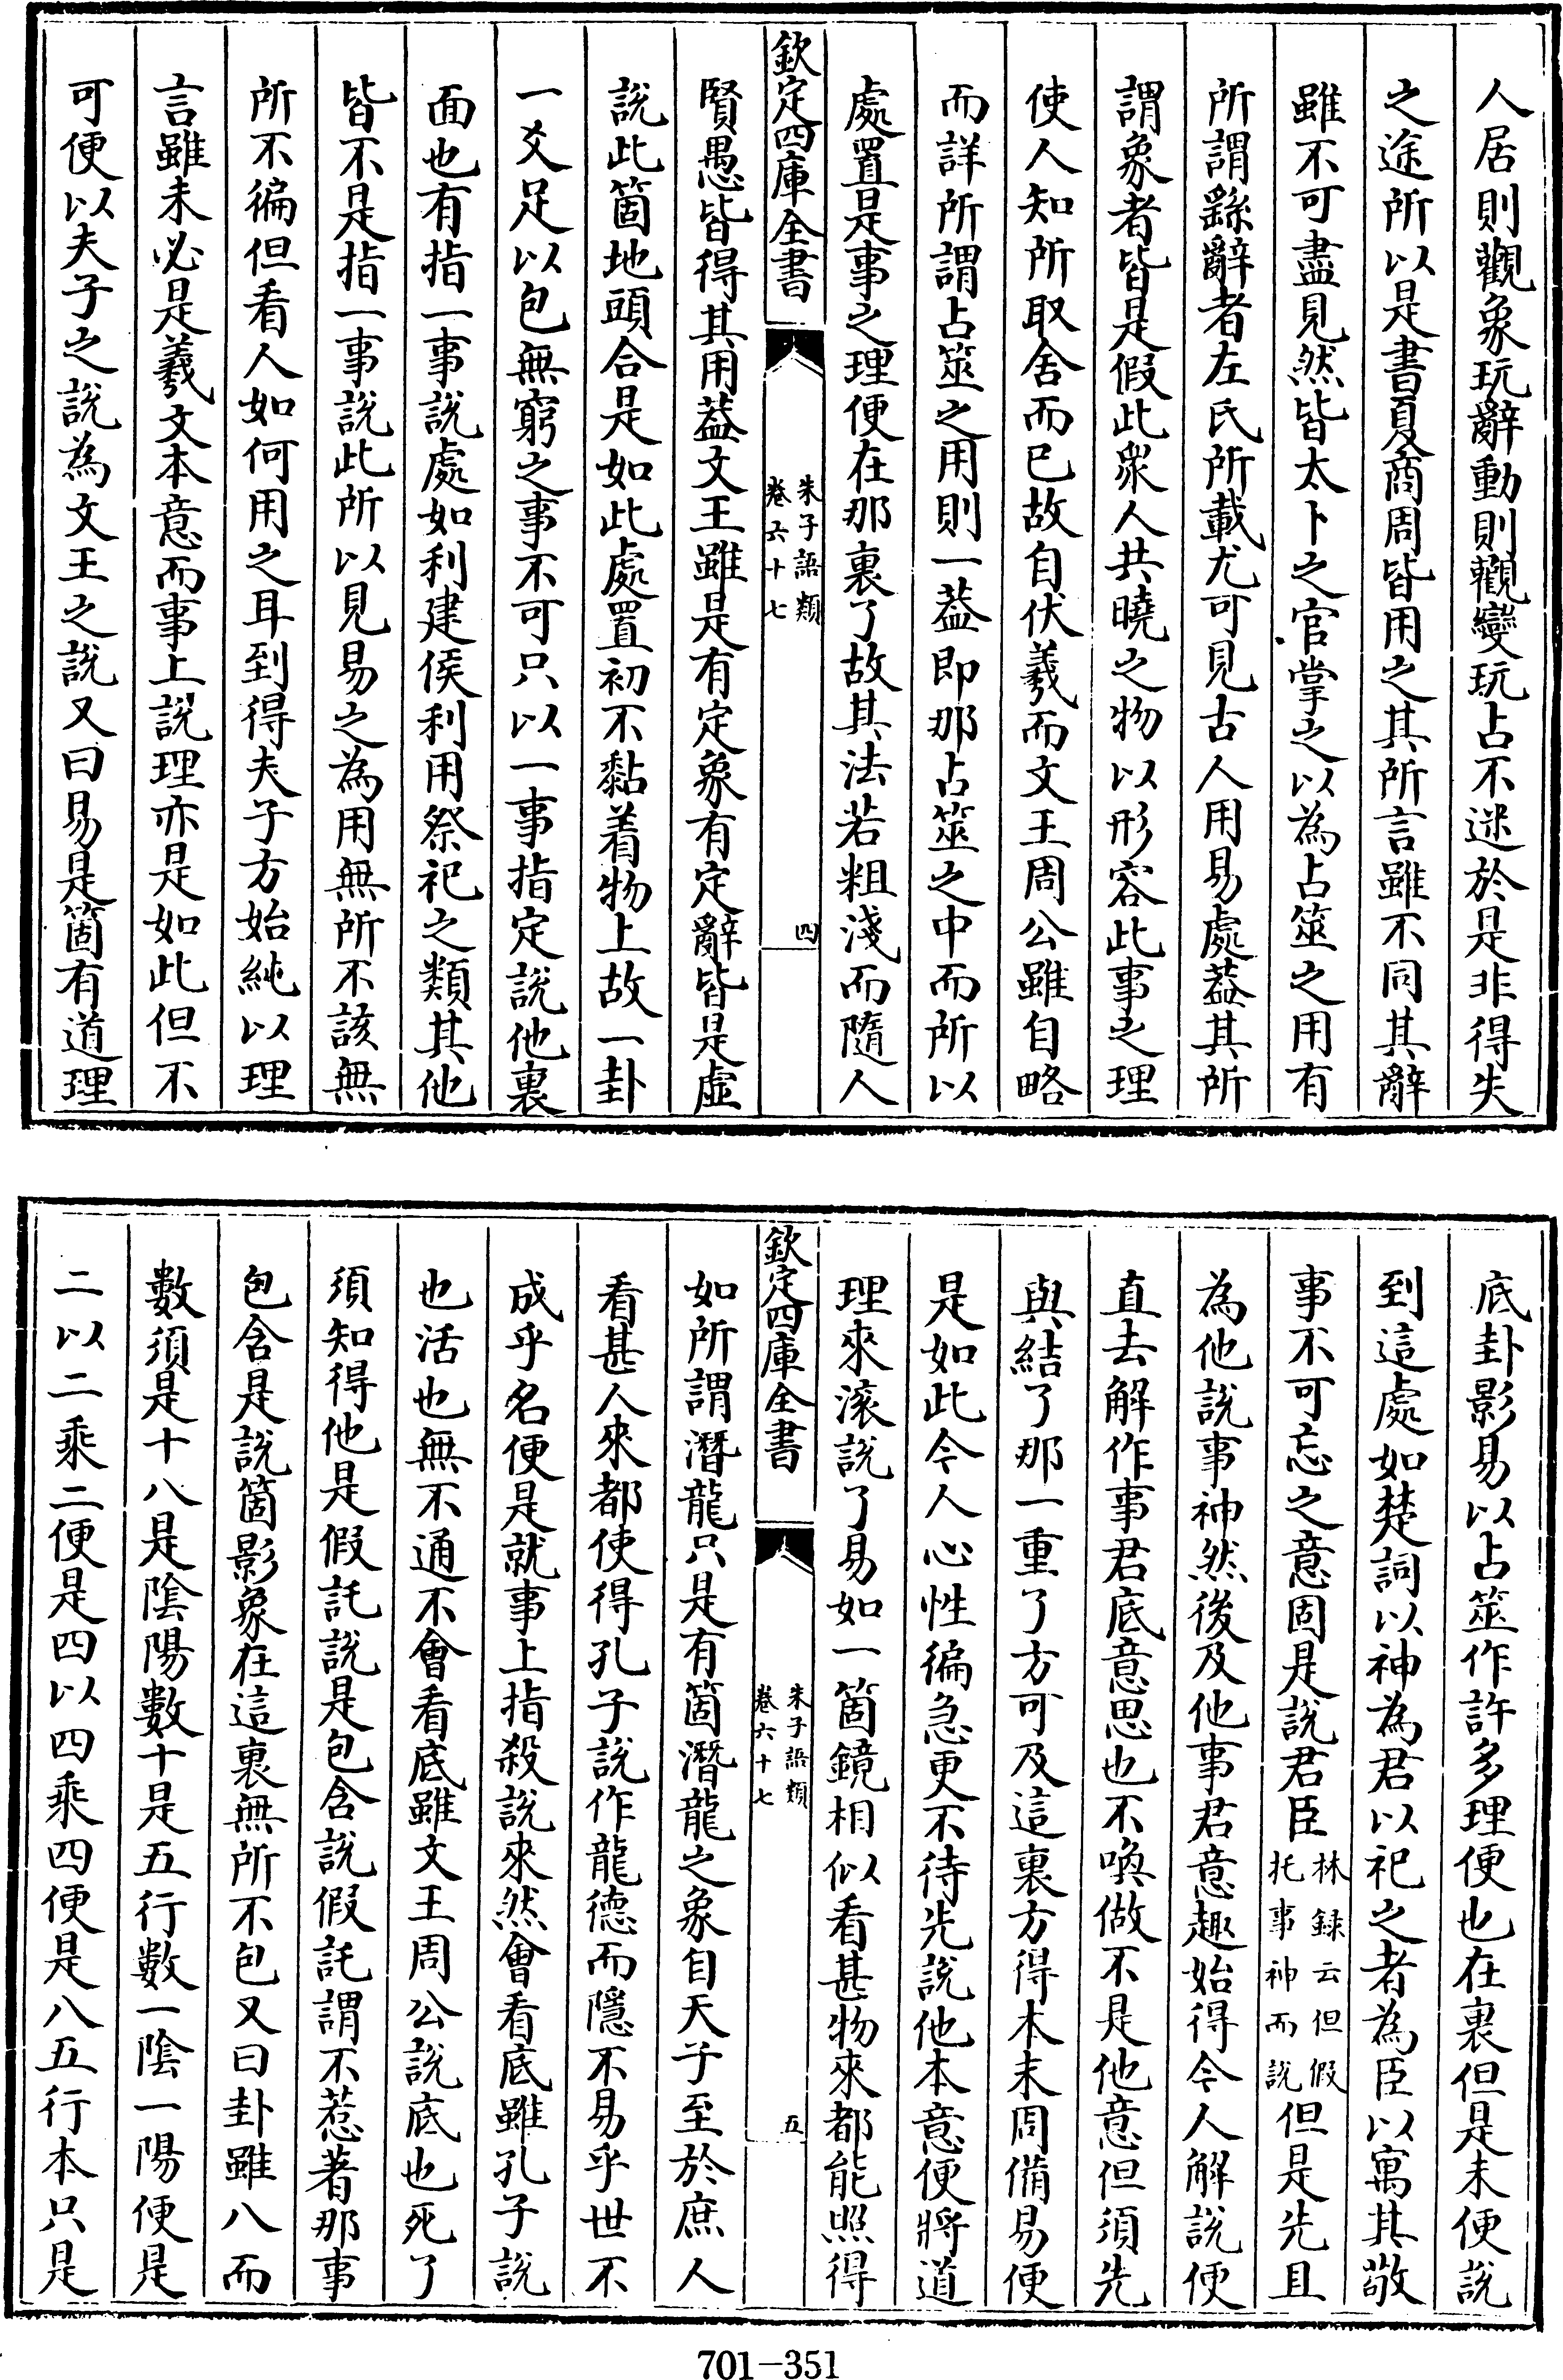 人居則觀象玩辭動則觀變玩占不迷於是非得失
之途所以是書夏商周皆用之其所言雖不同其辭
雖不可盡見然皆太卜之官掌之以為占筮之用有
所謂繇辭者左氏所載尤可見古人用易處葢其所
謂象者皆是假此衆人共曉之物以形容此事之理
使人知所取舍而已故自伏羲而文王周公雖自略
而詳所謂占筮之用則一葢即那占筮之中而所以
處置是事之理便在那裏了故其法若粗淺而隨人
欽定四庫全書
朱子語類
卷六十七
四
賢愚皆得其用葢文王雖是有定象有定辭皆是虛
說此箇地頭合是如此處置初不黏着物上故一卦
一爻足以包無窮之事不可只以一事指定說他裏
面也有指一事說處如利建侯利用祭祀之類其他
皆不是指一事說此所以見易之為用無所不該無
所不徧但看人如何用之耳到得夫子方始純以理
言雖未必是羲文本意而事上說理亦是如此但不
可便以夫子之說為文王之說又曰易是箇有道理
底卦影易以占筮作許多理便也在裏但是未便說
到這處如楚詞以神為君以祀之者為臣以寓其敬
事不可忘之意固是說君臣林録云但假托事神而說但是先且
為他說事神然後及他事君意趣始得今人解說便
直去解作事君底意思也不喚做不是他意但須先
與結了那一重了方可及這裏方得本末周備易便
是如此今人心性徧急更不待先說他本意便將道
理來滚說了易如一箇鏡相似看甚物來都能照得
欽定四庫全書
朱子語類
卷六十七
五
如所謂潛龍只是有箇潛龍之象自天子至於庶人
看甚人來都使得孔子說作龍德而隱不易乎世不
成乎名便是就事上指殺說來然會看底雖孔子說
也活也無不通不會看底雖文王周公說底也死了
須知得他是假託說是包含說假託謂不惹著那事
包含是說箇影象在這裏無所不包又曰卦雖八而
數須是十八是陰陽數十是五行數一陰一陽便是
二以二乘二便是四以四乘四便是八五行本只是
701-351